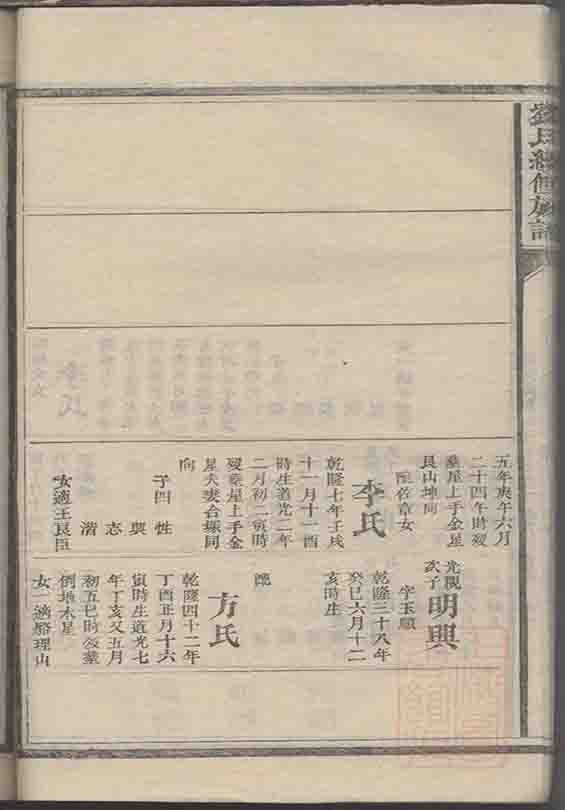 氏總修族譜
五年庚午六月
二十四午時歿
葬星上手金星
艮山坤向
配佐章女
李氏
乾隆七年壬戌
十一月十一酉
時生道光二年
二月初二寅時
歿葬星上手金
星夫妻合塚同
向
子四 性
興
志
清
女適王良臣
光觀
次子
明興
字玉順
乾隆三十八年
癸巳六月十二
亥時生
配
方氏
乾隆四十二年
丁酉正月十六
寅時生道光七
年丁亥又五月
初五巳時歿葬
倒地木星
女一適駱理山